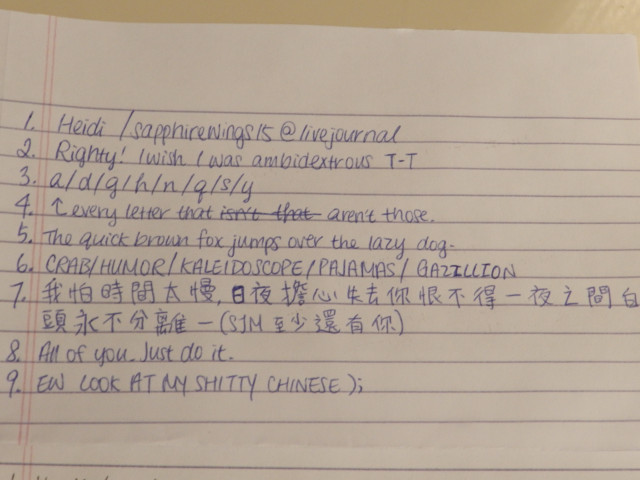 1. Heidi /sapphirewings15@livejournal
2. Righty! I wish I was ambidextrous T-T
3. a/d/g/h/n/q/s/y
4. ↑every letter that isn't that aren't those.
5. The quick brown fox jumps over the lazy dog.
6. CRAB/HUMOR/KALEIDOSCOPE/PAJAMAS/GAZILLION
7. 我怕時間太慢,日夜擔心失去你恨不得一夜之間白
頭永不分離—(SJM至少還有你)
8. All of you. Just do it.
9. EW LOOK AT MY SHITTY CHINESE );